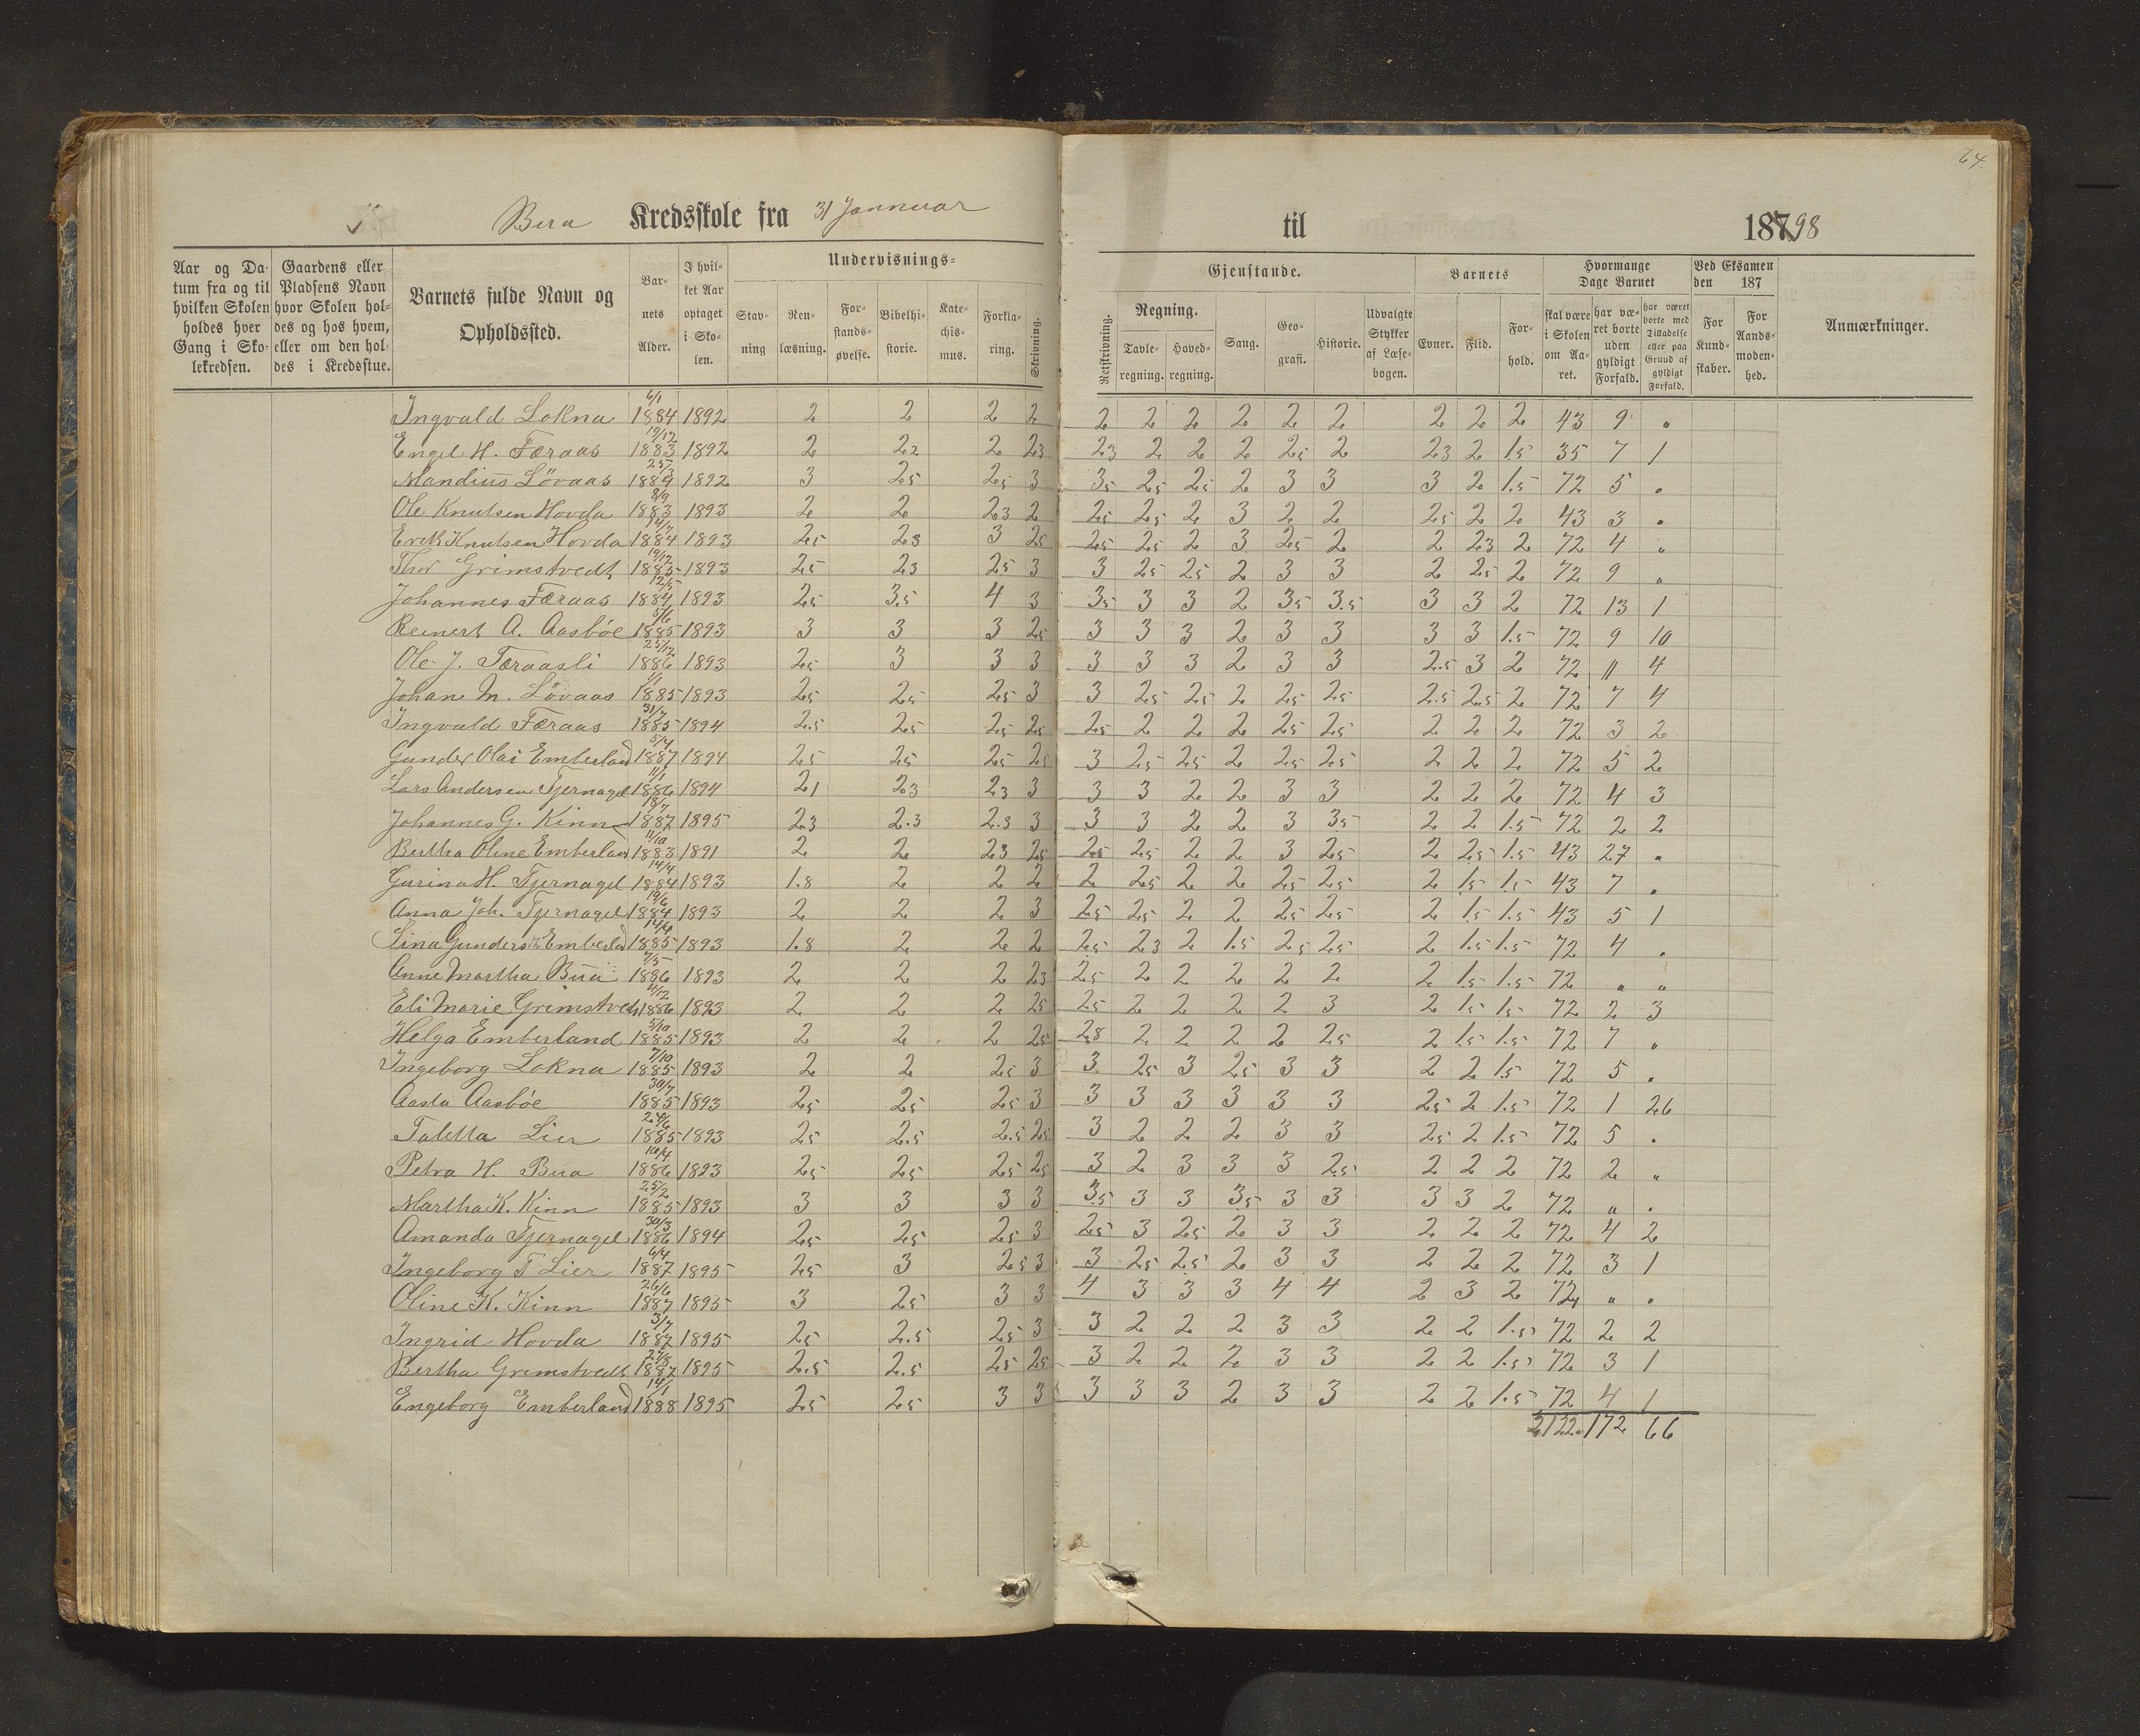 64.
Bua Kredsskole fra 31 Jannuar til 18798
Aar og Datum fra og til hvilken Skolen holdes hver Gang i Skolekredsen.
Gaardens eller Pladsens Navn hvor Skolen holdes og hos hvem, eller om den holdes i Kredsstue.
Barnets fulde Navn og Opholdssted.
Barnets Alder.
I hvilket Aar optaget i Skolen.
Undervisnings-
Stavning
Renlæsning.
Forstandsøvelse.
Bibelhistorie.
Katechismus.
Forklaring.
Skrivning.
Gjenstande.
Retskrivning.
Regning.
Tavleregning.
Hovedregning.
Sang.
Geografi.
Historie.
Udvalgte Stykker af Læsebogen.
Barnets
Evner.
Flid.
Forhold.
Hvormange Dage Barnet
skal være i Skolen om Aaret.
har været borte uden gyldigt Forfald.
har været borte med Tilladelse eller paa Grund af gyldigt Forfald.
Ved Eksamen den 187
For Kundskaber.
For Aandsmodenhed.
Anmærkninger.
Ingvald Lokna 6/1 1884 1892 2 2 2 2 2 2 2 2 2 2 2 2 2 43 9 "
Engel H. Færaas 19/12 1883 1892 2 2.2 2 2.3 2.3 2 2 2 2.5 2 2.3 2 1.5 35 7 1
Mandius Løvaas 25/3 1884 1892 3 2.5 2.5 3 3.5 2.5 2.5 2 3 3 3 2 1.5 72 5 "
Ole Knutsen Hovda 8/9 1883 1893 2 2 2.3 2 2.5 2.5 2 3 2 2 2.5 2 2 43 3 "
Erik Knutsen Hovda 14/7 1884 1893 2.5 2.3 3 2.5 2.5 2.5 2 3 2.5 2 2 2.3 2 72 4 "
Thor Grimstvedt 19/12 1885 1893 2.5 2.3 2.5 3 3 2.5 2.5 2 3 3 2 2.5 2 72 9 "
Johannes Færaas 12/5 1884 1893 2.5 3.5 4 3 3.5 3 3 2 3.5 3.5 3 3 2 72 13 1
Reinert A. Aasbøe 5/6 1885 1893 3 3 3 2.5 3 3 3 2 3 3 3 3 1.5 72 9 10
Ole J. Færaasli 25/12 1886 1893 2.5 3 3 3 3 3 3 2 3 3 2.5 3 2 72 11 4
Johan M. Løvaas 1/1 1885 1893 2.5 2.5 2.5 3 3 2.5 2.5 2 2.5 2.5 2.5 2.5 2 72 7 4
Ingvald Færaas 31/7 1885 1894 2.5 2.5 2.5 2.5 2.5 2 2 2 2.5 2.5 2 2 2 72 3 2
Gunder Olai Emberland 5/4 1887 1894 2.5 2.5 2.5 2.5 3 2.5 2.5 2 2.5 2.5 2 2 2 72 5 2
Lars Andersen Tjernagel 11/1 1886 1894 2.1 2.3 2.3 3 3 3 2 2 3 3 2 2 2 72 4 3
Johannes G. Kinn 18/7 1887 1895 2.3 2.3 2.3 3 3 3 2 2 3 3.5 2 2 1.5 72 2 2
Bertha Oline Emberland 11/10 1883 1891 2 2 2.3 2.5 2.5 2.5 2 2 3 2.5 2 2.5 1.5 43 27 "
Gurina H. Tjernagel 14/4 1884 1893 1.8 2 2 2 2 2.5 2 2 2.5 2.5 2 1.5 1.5 43 7 "
Anna Joh. Tjernagel 19/6 1884 1893 2 2 2 3 2.5 2.5 2 2 2.5 2.5 2 1.5 1.5 43 5 1
Lina Gunders. Emberland 1885 1893 1.8 2 2 2 2.5 2.3 2 1.5 2.5 2.5 2 1.5 1.5 72 4 "
Anne Martha Bua 7/5 1886 1893 2 2 2 2.3 2.5 2 2 2 2 2 2 1.5 1.5 72 " "
Eli Marie Grimstvedt 4/12 1886 1893 2 2 2 2.5 2.5 2 2 2 2 3 2 1.5 1.5 72 2 3
Helga Emberland 5/10 1885 1893 2 2 2 2.5 2.8 2 2 2 2 2.5 2 1.5 1.5 72 7 "
Ingeborg Lokna 7/10 1885 1893 2 2 2.5 3 3 2.5 3 2.5 3 3 2 2 1.5 72 5 "
Aasta Aasbøe 30/7 1885 1893 2.5 2.5 2.5 3 3 3 3 3 3 3 2.5 2 1.5 72 1 26
Taletta Lier 24/6 1885 1893 2.5 2.5 2.5 2.5 3 2 2 2 3 3 2.5 2 1.5 72 5 "
Petra H. Bua 10/4 1886 1893 2.5 2.5 2.5 2.5 3 2 3 3 3 2.5 2 2 2 72 2 "
Martha K. Kinn 25/2 1885 1893 3 3 3 3 3.5 3 3 3.5 3 3 3 3 2 72 " "
Amanda Tjernagel 30/3 1886 1894 2.5 2.5 2.5 3 2.5 3 2.5 2 3 3 2 2 2 72 4 2
Ingeborg T Lier 6/4 1887 1895 2.5 3 2.5 3 3 2.5 2.5 2 3 3 2 2 2 72 3 1
Oline K. Kinn 26/6 1887 1895 3 2.5 3 3 4 3 3 3 4 4 2 3 2 72 " "
Ingrid Hovda 3/7 1887 1895 2.5 2.5 2.5 3 3 2 2 2 3 3 2 2 1.5 72 2 2
Bertha Grimstvedt 27/8 1887 1895 2.5 2.5 2.5 2.5 3 2 2 2 3 3 2 2 1.5 72 3 1
Engeborg Emberland 14/1 1888 1895 2.5 2.5 3 3 3 3 3 2 3 3 2 2 1.5 72 4 1
2122 172 66